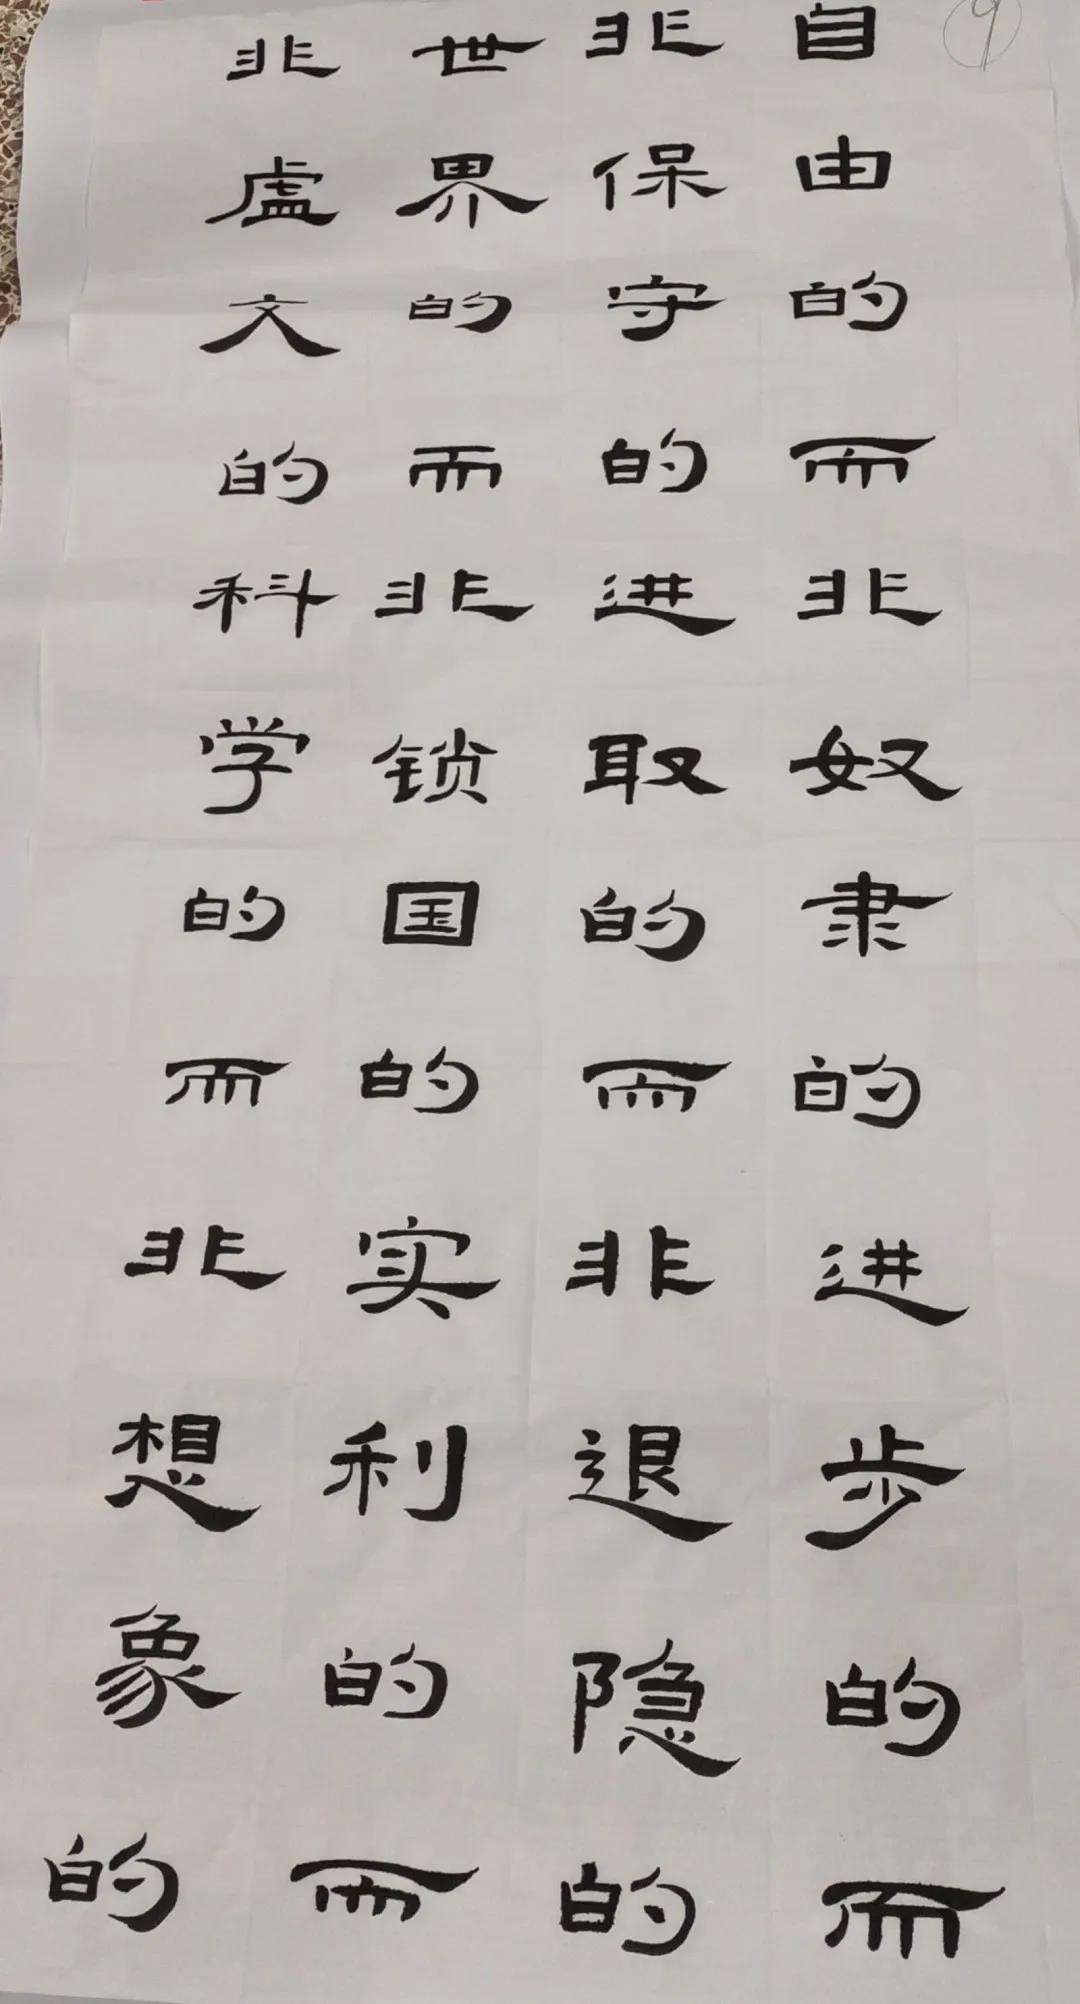 9
自由的而非奴隶的进步的而
非保守的进取的而非退隐的
世界的而非锁国的实利的而
非虚文的科学的而非想象的